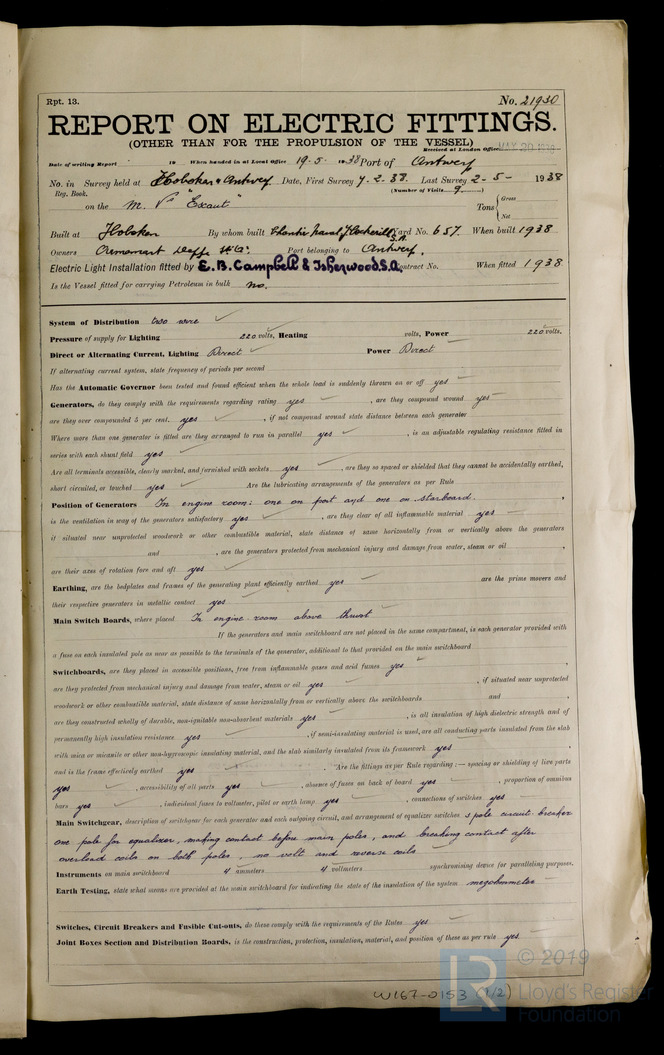 Rpt. 13.
No. 21930
REPORT ON ELECTRIC FITTINGS.
(OTHER THAN FOR THE PROPULSION OF THE VESSEL)
Received at London Office MAY 20 1938
Date of writing Report 19 When handed in at Local Office 19.5.1938 Port of Antwerp
No. in Survey held at Hoboken & Antwerp Date, First Survey 7-2-38. Last Survey 2-5-1938
Reg. Book. (Number of Visits 9)
on the M. Vs "Exaut" Tons { Gross
Net
Built at Hoboken By whom built Yard No. 657. When built 1938
S.A.
Owners Armement Deppe Port belonging to Antwerp.
Electric Light Installation fitted by E.B. Campbell & Isherwood, S.A. Contract No. When fitted 1938
Is the Vessel fitted for carrying Petroleum in bulk no.
System of Distribution two wire
Pressure of supply for Lighting 220 volts, Heating volts, Power 220 volts.
Direct or Alternating Current, Lighting Direct Power Direct
If alternating current system, state frequency of periods per second
Has the Automatic Governor been tested and found efficient when the whole load is suddenly thrown on or off yes
Generators, do they comply with the requirements regarding rating yes, are they compound wound yes
are they over compounded 5 per cent. yes, if not compound wound state distance between each generator
Where more than one generator is fitted are they arranged to run in parallel yes, is an adjustable regulating resistance fitted in
series with each shunt field yes
Are all terminals accessible, clearly marked, and furnished with sockets yes, are they so spaced or shielded that they cannot be accidentally earthed,
short circuited, or touched yes Are the lubricating arrangements of the generators as per Rule
Position of Generators In engine room: one on port and one on starboard.,
is the ventilation in way of the generators satisfactory yes, are they clear of all inflammable material yes
if situated near unprotected woodwork or other combustible material, state distance of same horizontally from or vertically above the generators
and, are the generators protected from mechanical injury and damage from water, steam or oil,
are their axes of rotation fore and aft yes
Earthing, are the bedplates and frames of the generating plant efficiently earthed yes are the prime movers and
their respective generators in metallic contact yes
Main Switch Boards, where placed In engine room above thrust
If the generators and main switchboard are not placed in the same compartment, is each generator provided with
a fuse on each insulated pole as near as possible to the terminals of the generator, additional to that provided on the main switchboard
Switchboards, are they placed in accessible positions, free from inflammable gases and acid fumes yes,
are they protected from mechanical injury and damage from water, steam or oil yes, if situated near unprotected
woodwork or other combustible material, state distance of same horizontally from or vertically above the switchboards and,
are they constructed wholly of durable, non-ignitable non-absorbent materials yes, is all insulation of high dielectric strength and of
permanently high insulation resistance yes, if semi-insulating material is used, are all conducting parts insulated from the slab
with mica or micanite or other non-hygroscopic insulating material, and the slab similarly insulated from its framework yes,
and is the frame effectively earthed yes. Are the fittings as per Rule regarding:— spacing or shielding of live parts
yes, accessibility of all parts yes, absence of fuses on back of board yes, proportion of omnibus
bars yes, individual fuses to voltmeter, pilot or earth lamp yes, connections of switches yes
Main Switchgear, description of switchgear for each generator and each outgoing circuit, and arrangement of equalizer switches 3 pole circuit breaker
one pole for equalizer, making contact before main poles, and breaking contact after
overload coils on both poles. no volt and reverse coils
Instruments on main switchboard 4 ammeters 4 voltmeters synchronising device for paralleling purposes.
Earth Testing, state what means are provided at the main switchboard for indicating the state of the insulation of the system megohmmeter
Switches, Circuit Breakers and Fusible Cut-outs, do these comply with the requirements of the Rules yes
Joint Boxes Section and Distribution Boards, is the construction, protection, insulation, material, and position of these as per rule yes.
W167-0153 (1/2)
LR
© 2019
Lloyd's Register
Foundation